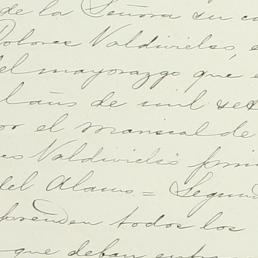 de la Señora su
Dolores Valdivielso,
el mayorazgo que
l año de mil se
or el mariscal de
es Valdivielso
del Alamo = Segun
prenden todos los
que deban